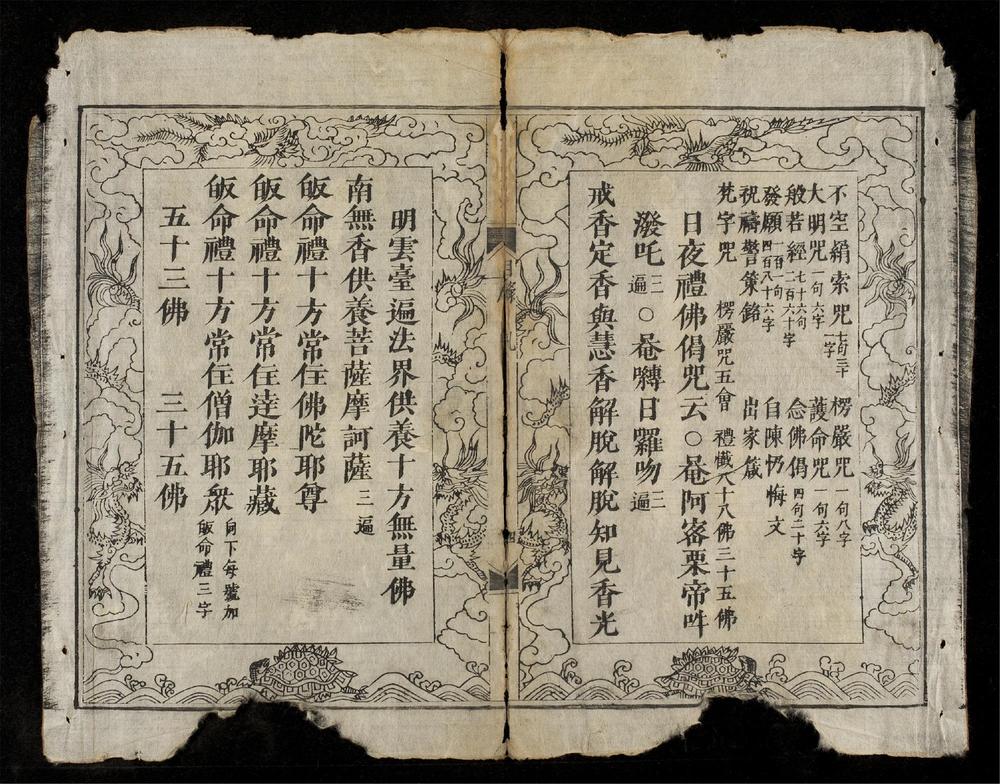 不空絹索咒 七句二十一字 楞嚴咒 一句八字
大明咒 一句六字 護命咒 一句六字
般若經 七十六句二百六十字 念佛偈 四句二十字
發願 一百一句四百八十六字 自陳 悔文
祝禱 䇿銘 出家箴
梵字咒 楞嚴咒五會 禮懺八十八佛三十五佛
日夜禮佛偈咒云○菴阿密栗帝吽
潑吒 三遍 ○菴囀日羅吻 三遍
戒香定香與慧香解脫解脫知見香光
明雲臺遍法界供養十方無量佛
南無香供養菩薩摩訶薩 三遍
皈命禮十方常住佛陀耶尊
皈命禮十方常住達摩耶藏
皈命禮十方常住僧伽耶眾 向下每號加皈命禮三字
五十三佛 三十五佛